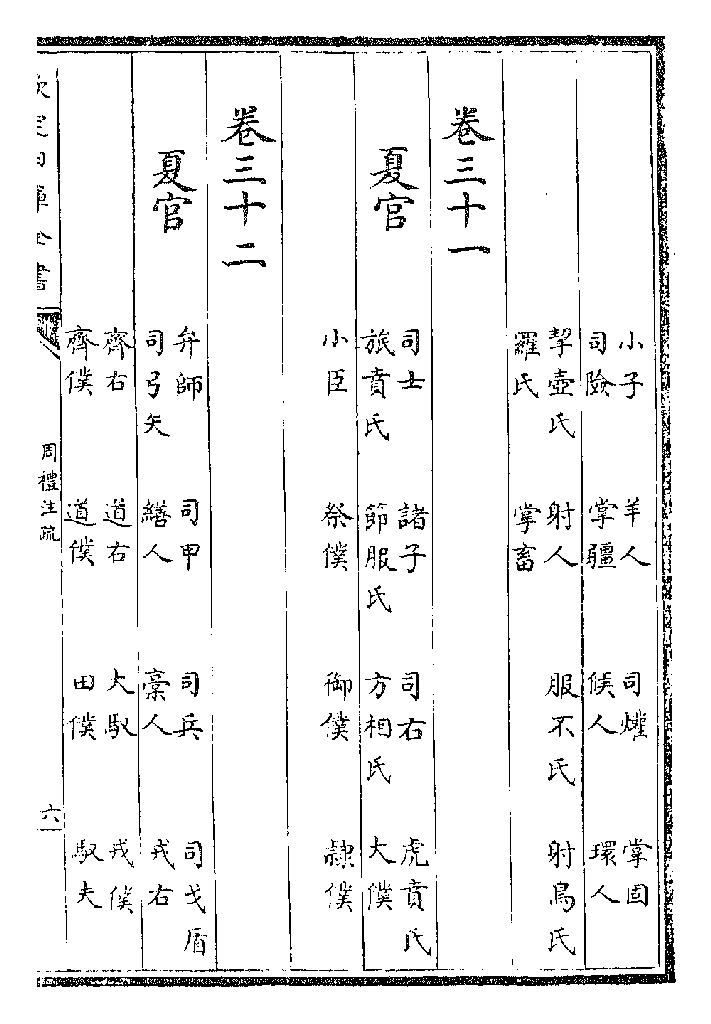 小子 羊人 司爟 掌固
司險 掌疆 候人 環人
挈壺氏 射人 服不氏 射鳥氏
羅氏 掌畜
卷三十一
夏官
司士 諸子 司右 虎賁氏
旅賁氏 節服氏 方相氏 大僕
小臣 祭僕 御僕 隸僕
卷三十二
夏官
弁師 司甲 司兵 司戈盾
司弓矢 繕人 槀人 戎右
齊右 道右 大馭 戎僕
齊僕 道僕 田僕 馭夫
欽定四庫全書
周禮注疏
六